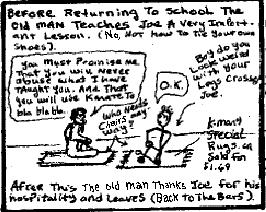 Before Returning To School The
Old man Teaches Joe A Very Import-
ant Lesson. (No, Not How To tie Your own
Shoes).
You must Promise me
That you will never
abuse what I have
Taught you. And That
you will use Karate To
bla bla bla..
Who needs
chairs any
way?
O.K.
Boy do you
Look weird
with your
Legs crossed
Joe.
K-mart
Special
Rug
Sold For
$1.69
After This The Old Man Thanks Joe for his
hospitality and Leaves (Back To The Bars).